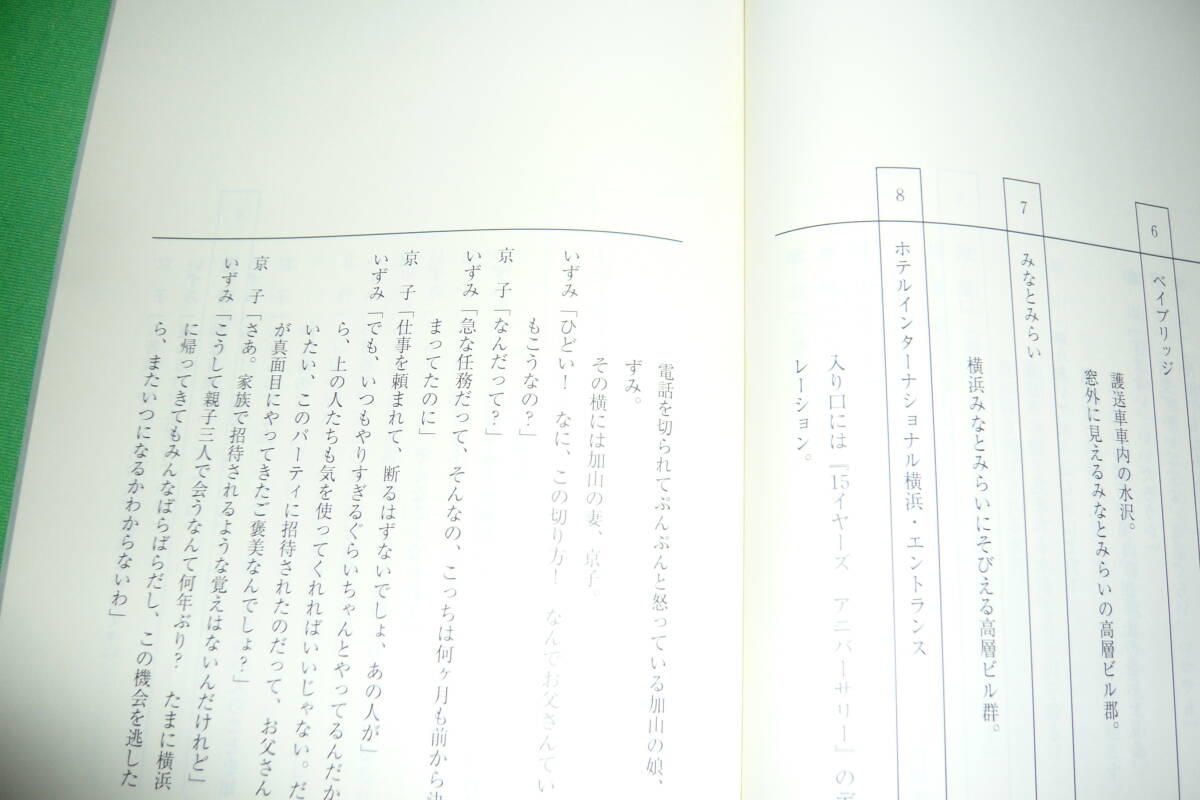 6
ベイブリッジ
護送車車内の水沢。
窓外に見えるみなとみらいの高層ビル郡。
7
みなとみらい
横浜みなとみらいにそびえる高層ビル群。
8
ホテルインターナショナル横浜・エントランス
入り口には『15イヤーズ　アニバーサリー』のデ
レーション。
電話を切られてぷんぷんと怒っている加山の娘、
ずみ。
その横には加山の妻、京子。
いずみ「ひどい！　なに、この切り方！　なんでお父さんてい
もこうなの？」
京　子「なんだって？」
いずみ「急な任務だって、そんなの、こっちは何ヶ月も前から決
まってたのに」
京　子「仕事を頼まれて、断るはずないでしょ、あの人が」
いずみ「でも、いつもやりすぎるぐらいちゃんとやってるんだか
ら、上の人たちも気を使ってくれればいいじゃない。だ
いたい、このパーティに招待されたのだって、お父さん
が真面目にやってきたご褒美なんでしょ？」
京　子「さあ。家族で招待されるような覚えはないんだけれど」
いずみ「こうして親子三人で会うなんて何年ぶり？　たまに横浜
に帰ってきてもみんなばらばらだし、この機会を逃した
ら、またいつになるかわからないわ」